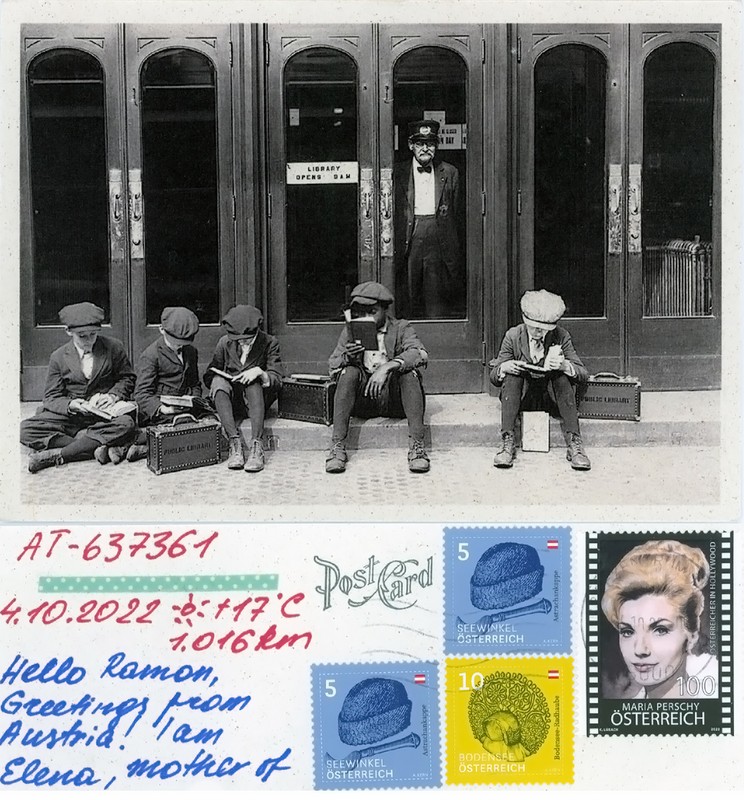 LIBRARY
OPENS 9 A.M.
PUBLIC LIBRARY
PUBLIC LIBRARY
AT-637361
4.10.2022 +17°C
1.016 km
Hello Ramon,
Greetings from
Austria! I am
Elena, mother of
Post Card
5
Astrachankappe
SEEWINKEL
ÖSTERREICH
5
Astrachankappe
SEEWINKEL
ÖSTERREICH
10
Bodensee-Radhaube
BODENSEE
ÖSTERREICH
ÖSTERREICHER IN HOLLYWOOD
100
MARIA PERSCHY
ÖSTERREICH